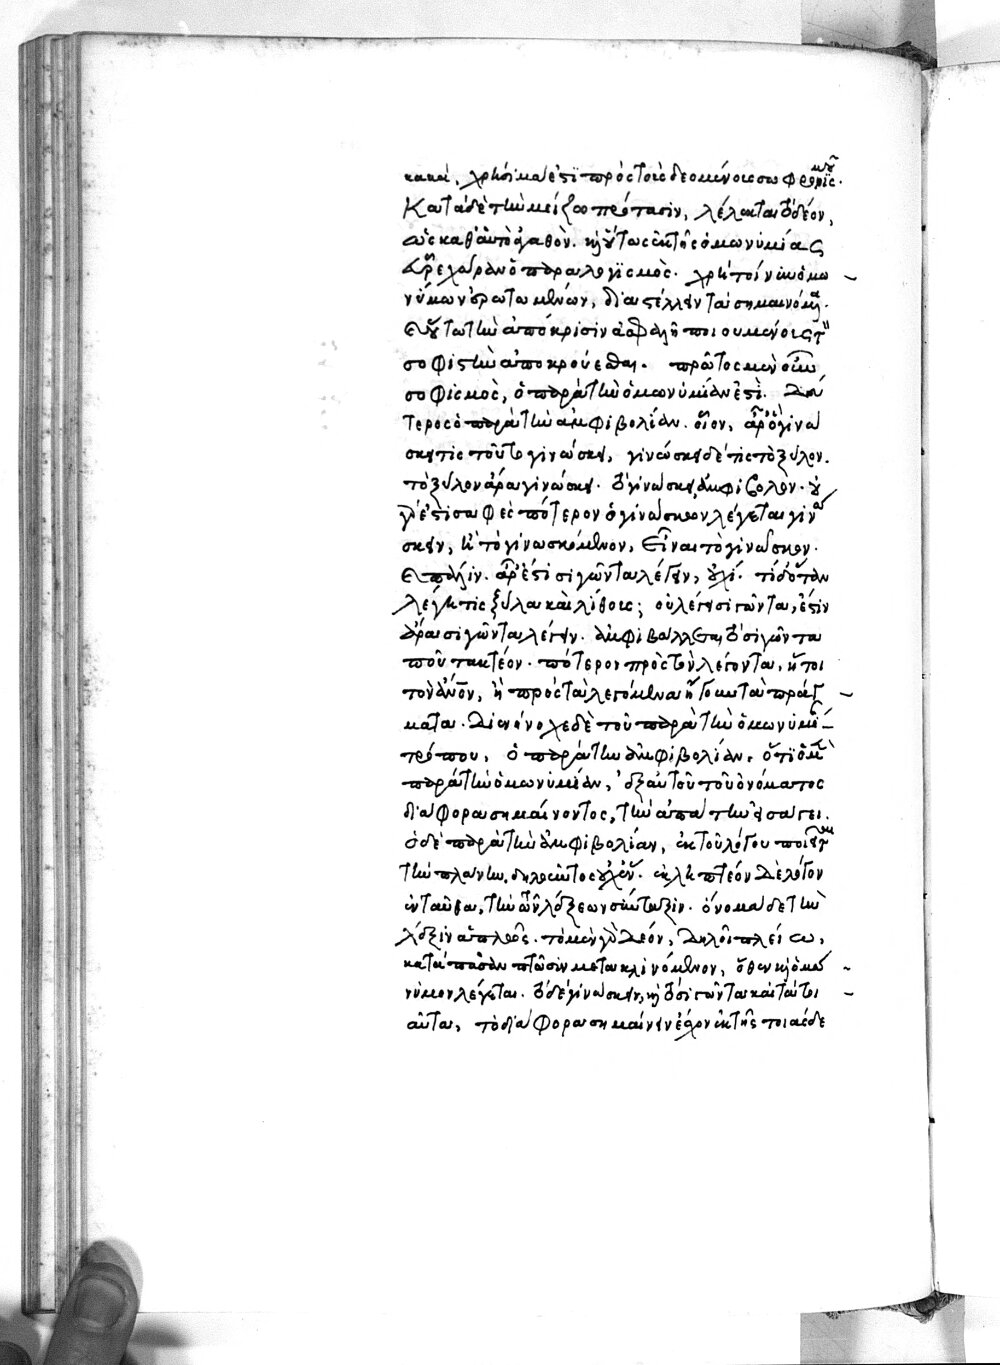 κακά, χρήσιμα ἐστὶ πρὸς τοῖς δεομένοις σωφρονισμοῦ.
Κατὰ δὲ τὴν μείζω πρότασιν, λέλεκται τὸ δέον,
ὡς καθ' αὑτὸ ἀγαθόν. καὶ οὕτως ἐκ τῆς ὁμωνυμίας
χώραν ὁ παραλογισμός. χρὴ τοίνυν ὁμω
νύμων ἐρωτωμένων, διαστέλλειν τὰ σημαινόμενα.
οὕτω τὴν ἀπόκρισιν ἀσφαλῆ ποιουμένοις τὴν
σοφιστὴν ἀποκρούεσθαι. πρῶτος μὲν οὖν
σοφισμὸς, ὁ παρὰ τὴν ὁμωνυμίαν ἐστί. Δεύ
τερος ὁ παρὰ τὴν ἀμφιβολίαν. οἷον, ἆρ' ὃ γινώ
σκει τις τοῦτο γινώσκει, γινώσκει δέ τις τὸ ξύλον.
τὸ ξύλον ἄρα γινώσκει. τὸ γινώσκει, ἀμφίβολον. οὐ
γάρ ἐστι σαφὲς πότερον ὁ γινώσκων λέγεται γινώ
σκειν, ἢ τὸ γινωσκόμενον, εἶναι τὸ γινῶσκον.
πάλιν. ἆρ' ἔστι σιγῶντα λέγειν, οὐχί. τί δ' ὅταν
λέγῃ τις ξύλα καὶ λίθους; οὐ λέγει σιγῶντα, ἔστιν
ἄρα σιγῶντα λέγειν. ἀμφιβάλλεται, τὸ σιγῶντα
ποῦ τακτέον. πότερον πρὸς τὸν λέγοντα, ἤτοι
τὸν ἄνον, ἢ πρὸς τὰ λεγόμενα ἤγουν τὰ πράγ
ματα. Διενήνοχε δὲ τοῦ παρὰ τὴν ὁμωνυμίαν
τρόπου, ὁ παρὰ τὴν ἀμφιβολίαν, ὅτι ὁ μὲν
παρὰ τὴν ὁμωνυμίαν, ἐξ αὐτοῦ τοῦ ὀνόματος
διάφορα σημαίνοντος, τὴν ἀπάτην εἰσάγει.
ὁ δὲ παρὰ τὴν ἀμφιβολίαν, ἐκ τοῦ λόγου ποιεῖται
τὴν πλάνην, ἐκληπτέον δὲ λόγον
ἐνταῦθα, τὴν τῶν λέξεων σύνταξιν. ὄνομα δὲ τὴν
λέξιν ἁπλῶς. τὸ μὲν γὰρ δέον, δηλοῖ πλείω,
κατὰ πᾶσαν πτῶσιν μετακλινόμενον, ὅθεν καὶ ὁμώ
νυμον λέγεται. τὸ δὲ γινώσκειν, καὶ τὸ σιγῶντα καὶ τὰ τοι
αῦτα, τὸ διάφορα σημαίνειν ἔσχον ἐκ τῆς τοιᾶσδε